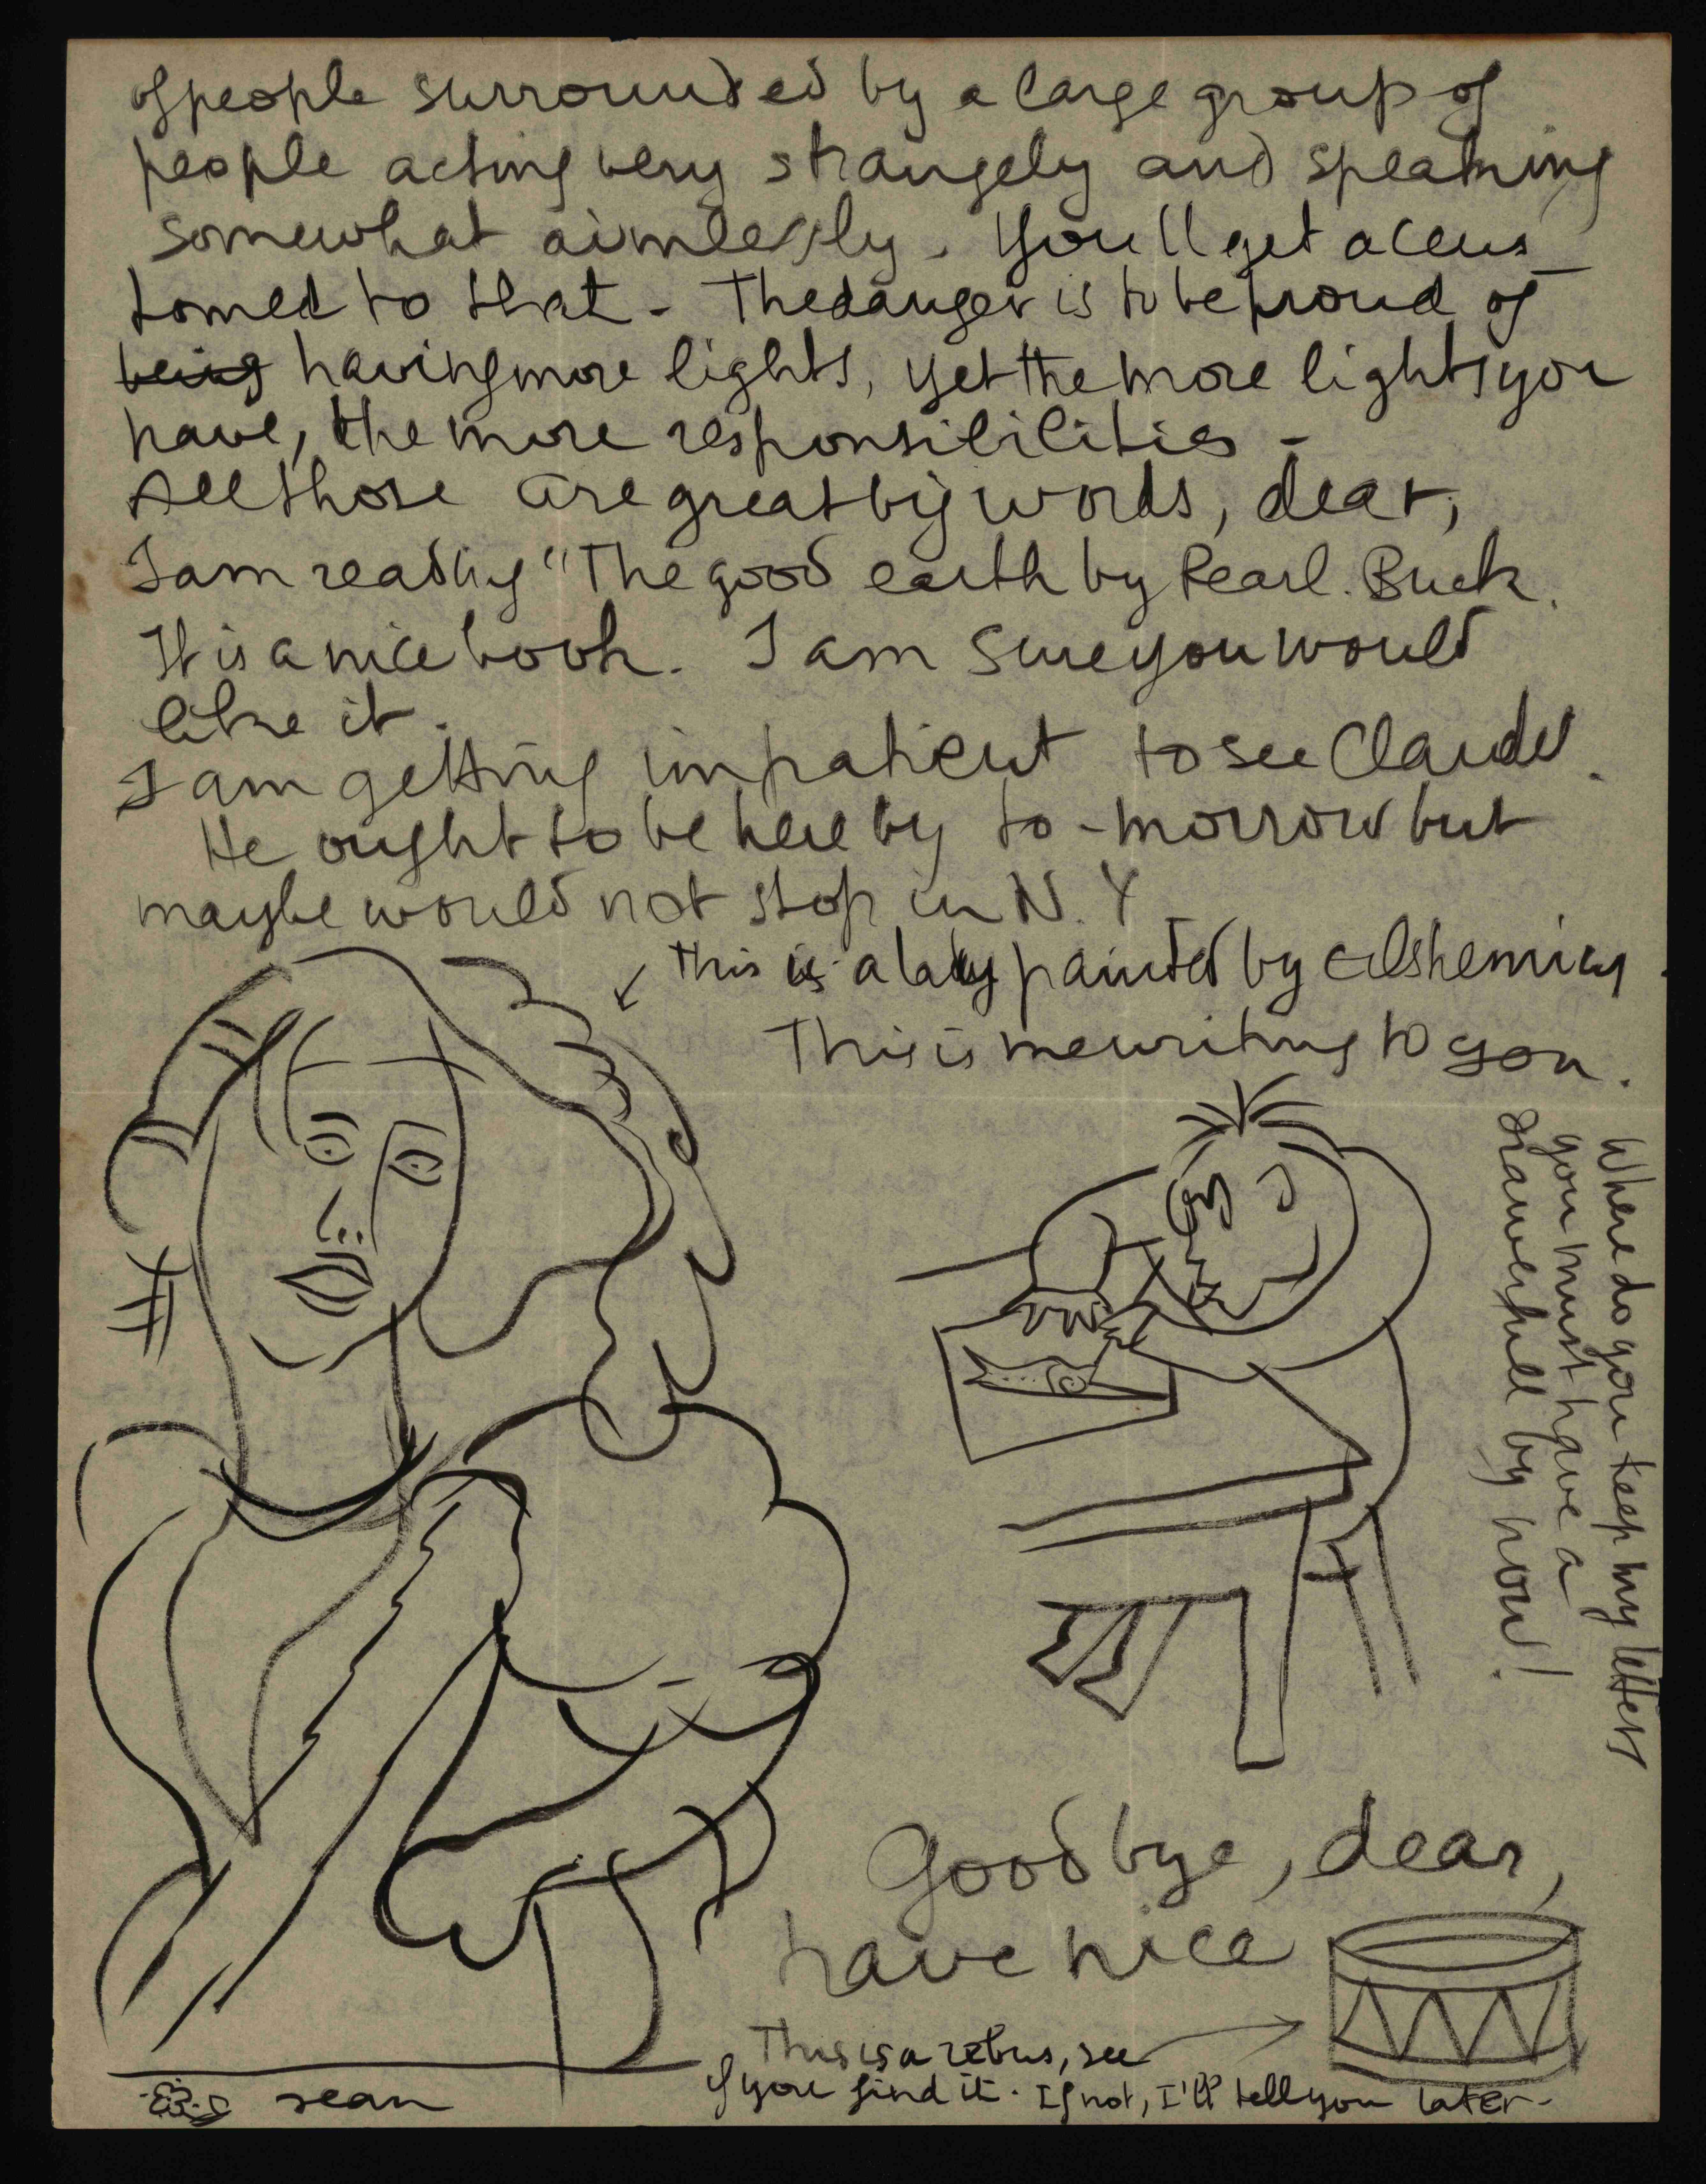 of people surrounded by a large group of
people acting very strangely and speaking
somewhat aimlessly. You'll get accus
tomed to that - The danger is to be proud of
being having more lights, yet the more lights you
have, the more responsibilities -
All those are great big words, dear,
I am reading "The good earth by Pearl. Buck.
It is a nice book. I am sure you would
like it.
I am getting impatient to see Claude.
He ought to be here by to-morrow but
maybe would not stop in N.Y
this is a lady painted by Eilshemius.
This is me writing to you.
Where do you keep my letters
you must have a
drawer full by now!
Good bye, dear,
have nice
This is a rebus, see
if you find it. If not, I'll tell you later-